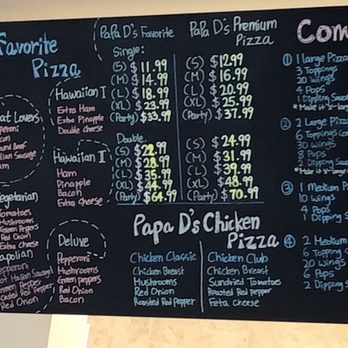 Favorite
Pizza
at Lovers
Peperoni
Bacon
Ground Beef
Italian Sausage
Ham
Vegetarian
Tomatoes
Mushrooms
Green Peppers
Red Onion
Extra Cheese
Napolian
Pepperoni
Hot Italian Sausage
Green Pepper
Roasted Red Pepper
Red Onion
Hawaiian I
Extra Ham
Extra Pineapple
Double Cheese
Hawaiian II
Ham
Pinapple
Bacon
Extra cheese
Deluxe
Pepperoni
Mushrooms
Green peppers
Red Onion
Bacon
Papa D's Favorite
Single:
(S) $11.99
(M) $14.99
(L) $18.99
(XL) $23.99
(Party) $33.99
Double:
(S) $22.99
(M) $28.99
(L) $35.99
(XL) $44.99
(Party) $64.99
Papa D's Premium
Pizza
(S) $12.99
(M) $16.99
(L) $20.99
(XL) $25.99
(Party) $37.99
(S) $24.99
(M) $31.99
(L) $39.99
(XL) $48.99
(Party) $70.99
Papa D's Chicken
Pizza
Chicken Classic
Chicken Breast
Mushrooms
Red Onion
Roasted Red Pepper
Chicken Club
Chicken Breast
Sundried Tomatoes
Roasted Red Pepper
Feta Cheese
Com
① 1 Large Pizza
3 Toppings
20 Wings
4 Pops
1 Dipping Sauce
* Make it X-larg
② 2 Large Pizza
6 Toppings Com
30 Wings
8 Pops
2 Dipping Sauce
* Make it X-larg
③ 1 Medium P
10 Wings
4 Pops
1 Dipping S
④ 2 Medium
6 Topping
20 Wings
6 Pops
2 Dipping S